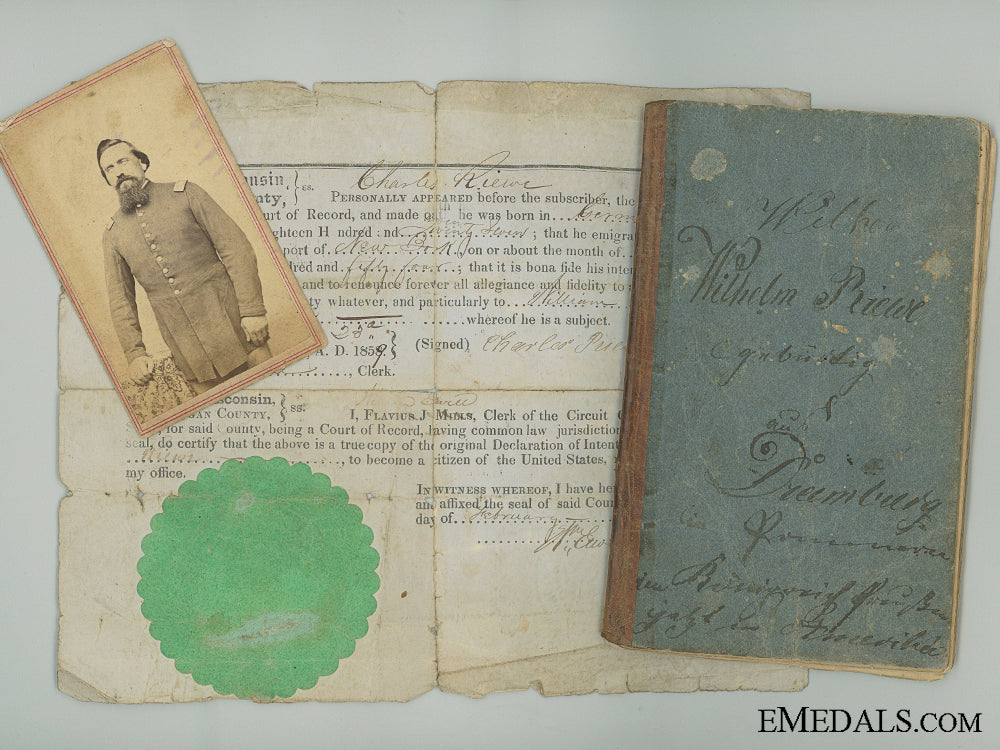 consin,
unty, } ss.
Charles Riewe
PERSONALLY APPEARED before the subscriber, the
ourt of Record, and made oath he was born in
ghteen H ndred nd ; that he emigra
port of New York, on or about the month of
dred and fifty four ; that it is bona fide his inten
and to renounce forever all allegiance and fidelity to
ty whatever, and particularly to William
whereof he is a subject.
23d
A. D. 1859. } (Signed) Charles
, Clerk.
sconsin,
GAN COUNTY, } ss. I, FLAVIUS J MILLS, Clerk of the Circuit C
for said County, being a Court of Record, having common law jurisdiction
seal, do certify that the above is a true copy of the original Declaration of Intent
, to become a citizen of the United States,
my office.
IN WITNESS WHEREOF, I have he
and affixed the seal of said Coun
day of
Wilhe
Wilhelm Riewe
gebürtig
aus
Dramburg
in Pommern,
im Königreich Preußen
jetzt in Amerika
EMEDALS.COM